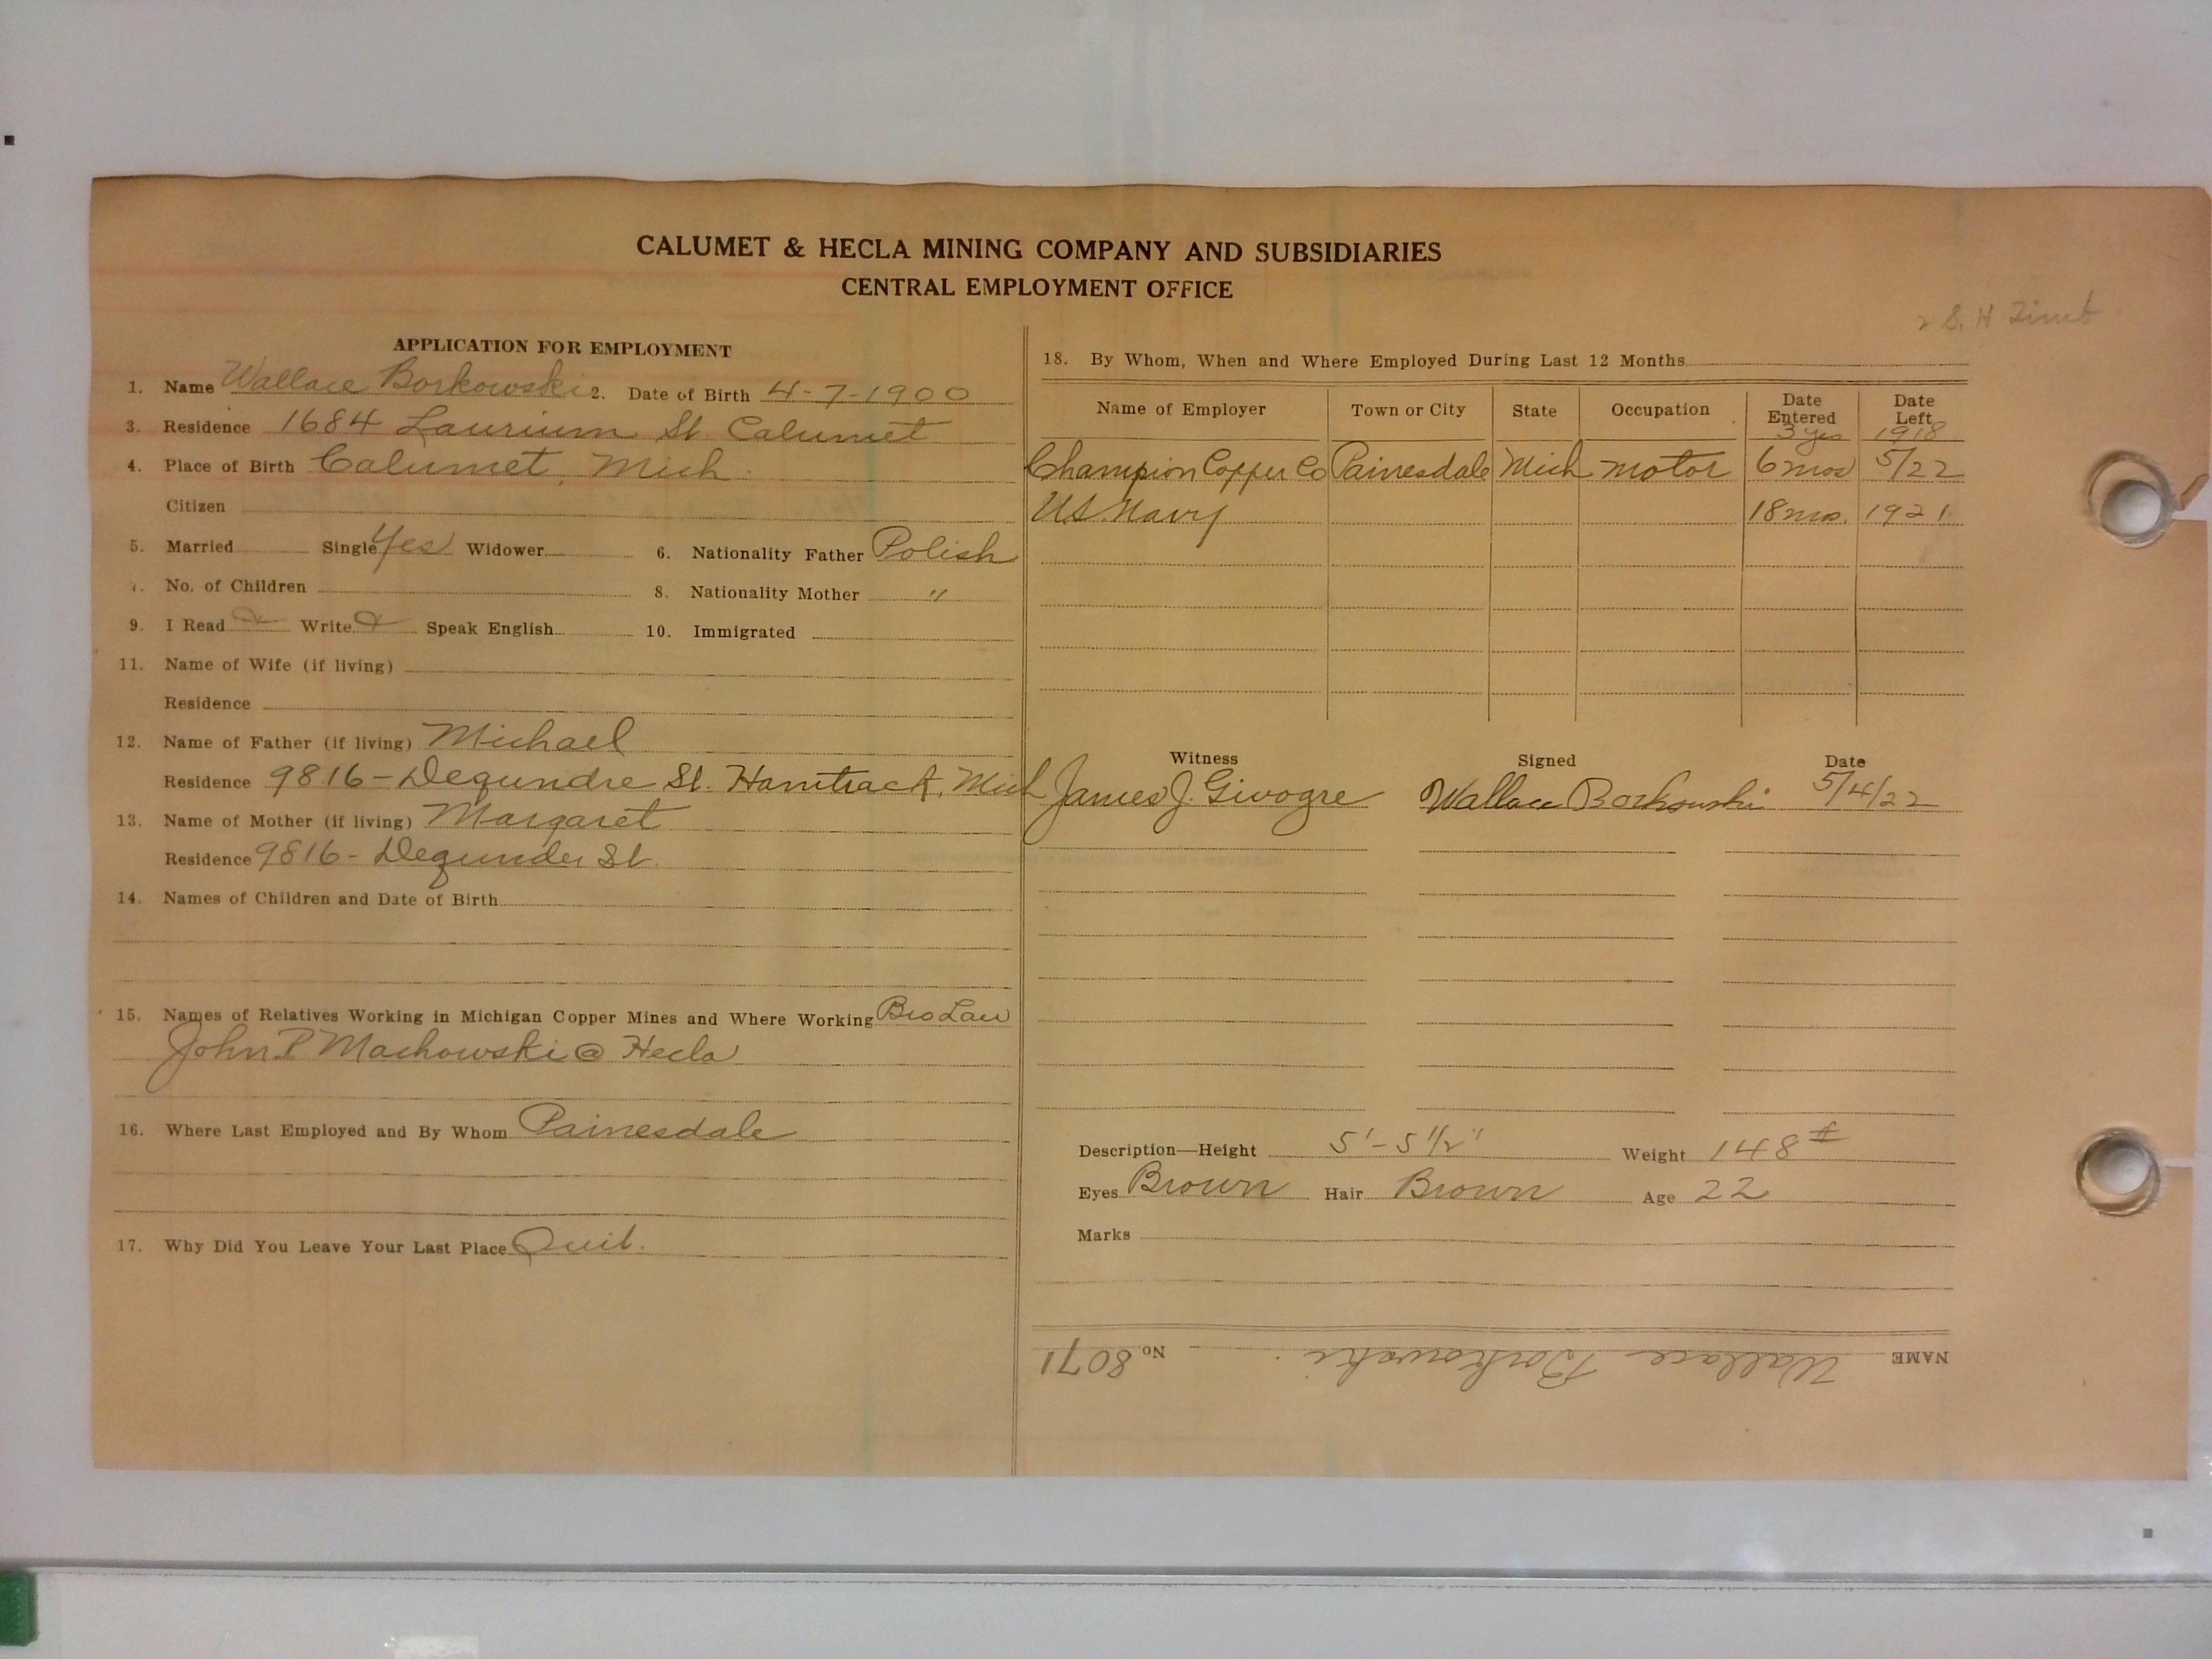 CALUMET & HECLA MINING COMPANY AND SUBSIDIARIES
CENTRAL EMPLOYMENT OFFICE
S. H
APPLICATION FOR EMPLOYMENT
1. Name Wallace Borkowski 2. Date of Birth 4-7-1900
3. Residence 1684 Laurium St. Calumet
4. Place of Birth Calumet, Mich.
Citizen
5. Married Single Yes Widower 6. Nationality Father Polish
7. No. of Children 8. Nationality Mother "
9. I Read Write Speak English 10. Immigrated
11. Name of Wife (if living)
Residence
12. Name of Father (if living) Michael
Residence 9816 - Dequndre St. Hamtrack, Mich
13. Name of Mother (if living) Margaret
Residence 9816 - Dequnder St.
14. Names of Children and Date of Birth
15. Names of Relatives Working in Michigan Copper Mines and Where Working Bro Law
John P. Machowski @ Hecla
16. Where Last Employed and By Whom Painesdale
17. Why Did You Leave Your Last Place Quit.
18. By Whom, When and Where Employed During Last 12 Months
Name of Employer Town or City State Occupation Date Entered Date Left
3 yrs 1918
Champion Copper Co Painesdale Mich motor 6 mos 5/22
U.S. Navy 18 mos. 1921
Witness Signed Date
James J. Givogre Wallace Borkowski 5/4/22
Description—Height 5'-5 1/2" Weight 148 #
Eyes Brown Hair Brown Age 22
Marks
NAME Wallace Borkowski No. 8071